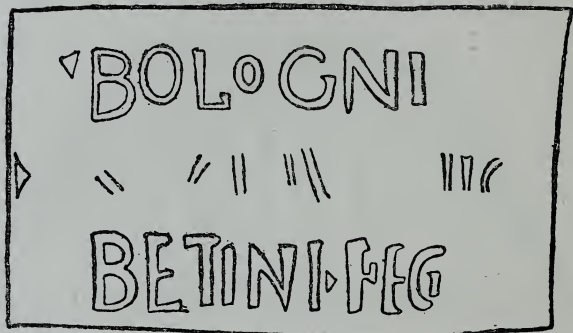 BOLOGNI
BETINI·FEC